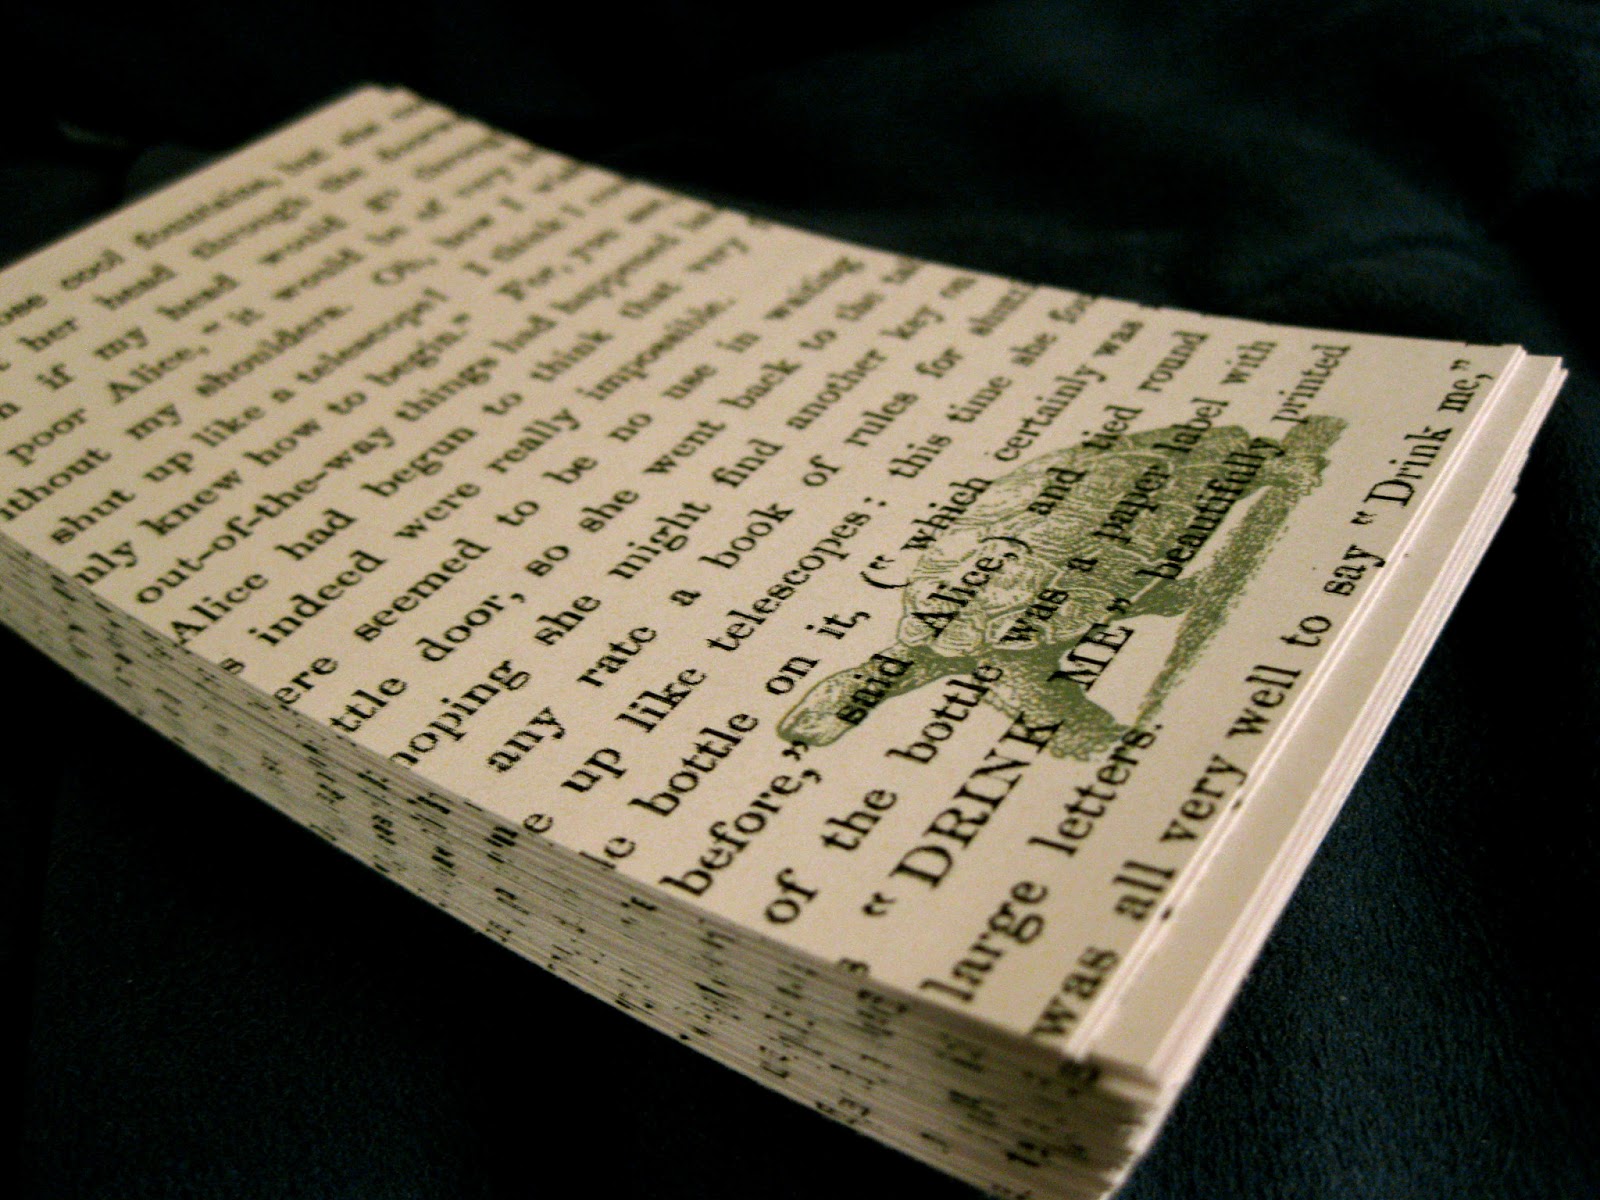 ose cool fountains, but she
her head through the doorw
if my head would go throug
poor Alice, "it would be of very
ithout my shoulders. Oh, how I
shut up like a telescope! I think I
nly knew how to begin." For, you see
out-of-the-way things had happened
Alice had begun to think that very
s indeed were really impossible.
ere seemed to be no use in waiting
ttle door, so she went back to the ta
hoping she might find another key on
any rate a book of rules for shutt
e up like telescopes: this time she fou
le bottle on it, ("which certainly was
before," said Alice,) and tied round
of the bottle was a paper label with
s "DRINK ME" beautifully printed
large letters.
was all very well to say "Drink me,"